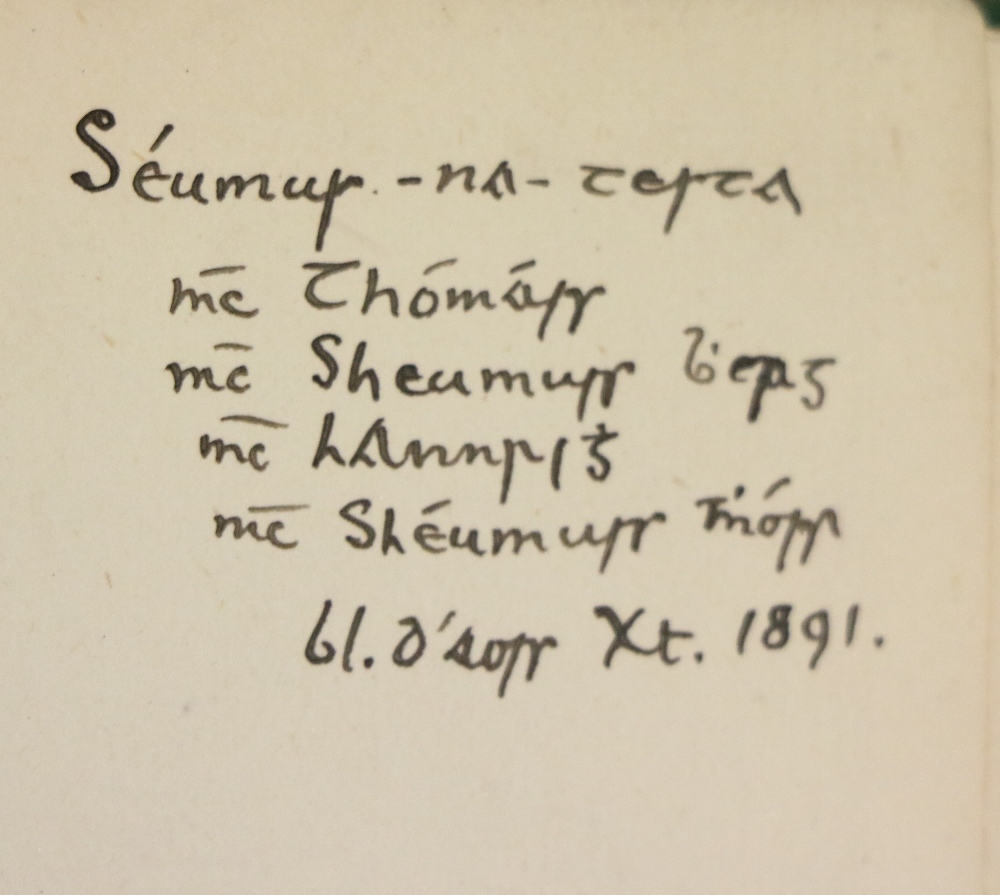 Séumus -na- testa
mc̄ Thómáis
mc̄ Sheumuis ḃig
mc̄ hAnnriġ
mc̄ Shéumuis ṁóir
bl. d'aois Xt. 1891.